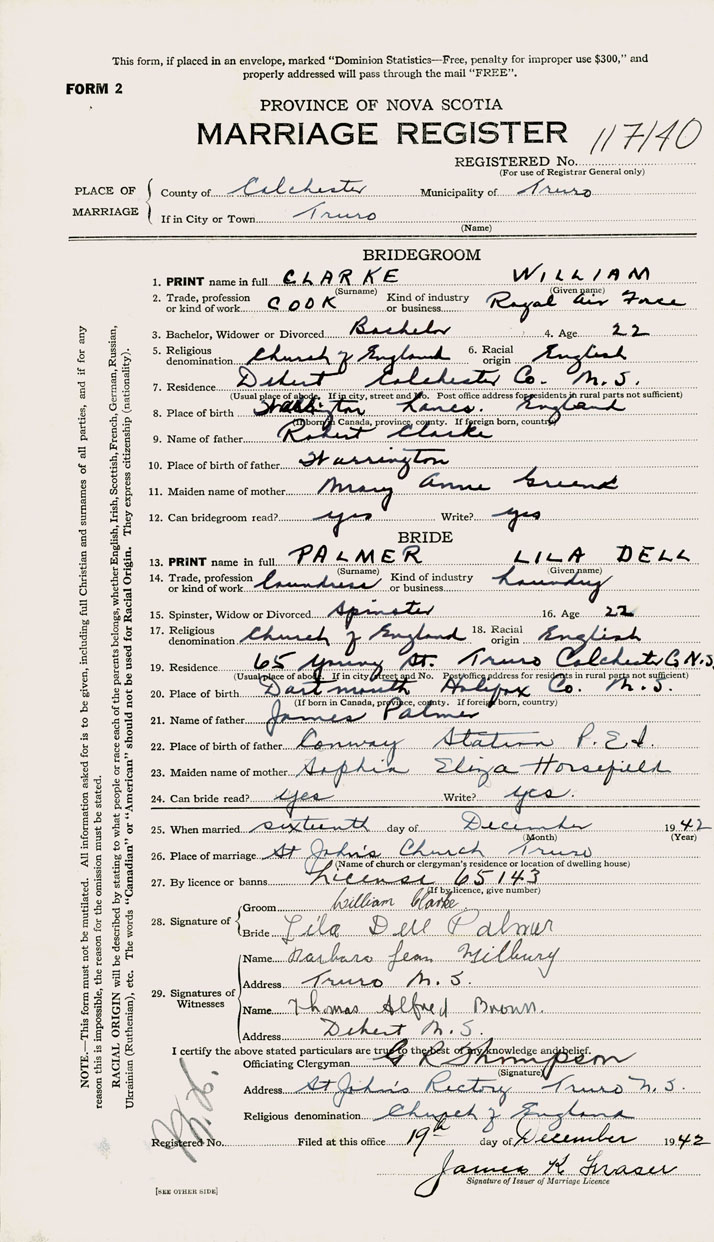 This form, if placed in an envelope, marked "Dominion Statistics—Free, penalty for improper use $300," and
properly addressed will pass through the mail "FREE".
FORM 2
PROVINCE OF NOVA SCOTIA
MARRIAGE REGISTER 117140
REGISTERED No.
(For use of Registrar General only)
PLACE OF MARRIAGE
County of Colchester Municipality of Truro
If in City or Town Truro
(Name)
BRIDEGROOM
1. PRINT name in full CLARKE WILLIAM
(Surname) (Given name)
2. Trade, profession or kind of work COOK Kind of industry or business Royal Air Force
3. Bachelor, Widower or Divorced Bachelor 4. Age 22
5. Religious denomination Church of England 6. Racial origin English
7. Residence Debert Colchester Co. N.S.
(Usual place of abode. If in city, street and No. Post office address for residents in rural parts not sufficient)
8. Place of birth Lancs. England
(If born in Canada, province, county. If foreign born, country)
9. Name of father Robert Clarke
10. Place of birth of father Warrington
11. Maiden name of mother Mary Anne
12. Can bridegroom read? yes Write? yes
BRIDE
13. PRINT name in full PALMER LILA DELL
(Surname) (Given name)
14. Trade, profession or kind of work laundress Kind of industry or business Laundry
15. Spinster, Widow or Divorced Spinster 16. Age 22
17. Religious denomination Church of England 18. Racial origin English
19. Residence 65 Young St. Truro Colchester Co N.S.
(Usual place of abode. If in city, street and No. Post office address for residents in rural parts not sufficient)
20. Place of birth Dartmouth Halifax Co. N.S.
(If born in Canada, province, county. If foreign born, country)
21. Name of father James Palmer
22. Place of birth of father Conway Station P.E.I.
23. Maiden name of mother Sophia Eliza Horsefield
24. Can bride read? yes Write? yes.
25. When married sixteenth day of December 1942
(Month) (Year)
26. Place of marriage St John's Church Truro
(Name of church or clergyman's residence or location of dwelling house)
27. By licence or banns License 65143
(If by licence, give number)
28. Signature of
Groom William Clarke
Bride Lila Dell Palmer
29. Signatures of Witnesses
Name Barbara Jean Milbury
Address Truro N.S.
Name Thomas Alfred Brown.
Address Debert N.S.
I certify the above stated particulars are true to the best of my knowledge and belief.
Officiating Clergyman G R Thompson
(Signature)
Address St John's Rectory Truro N.S.
Religious denomination Church of England
Registered No. Filed at this office 19th day of December 1942
James K Fraser
Signature of Issuer of Marriage Licence
[SEE OTHER SIDE]
NOTE.—This form must not be mutilated. All information asked for is to be given, including full Christian and surnames of all parties, and if for any
reason this is impossible, the reason for the omission must be stated.
RACIAL ORIGIN will be described by stating to what people or race each of the parents belongs, whether English, Irish, Scottish, French, German, Russian,
Ukrainian (Ruthenian), etc. The words "Canadian" or "American" should not be used for Racial Origin. They express citizenship (nationality).